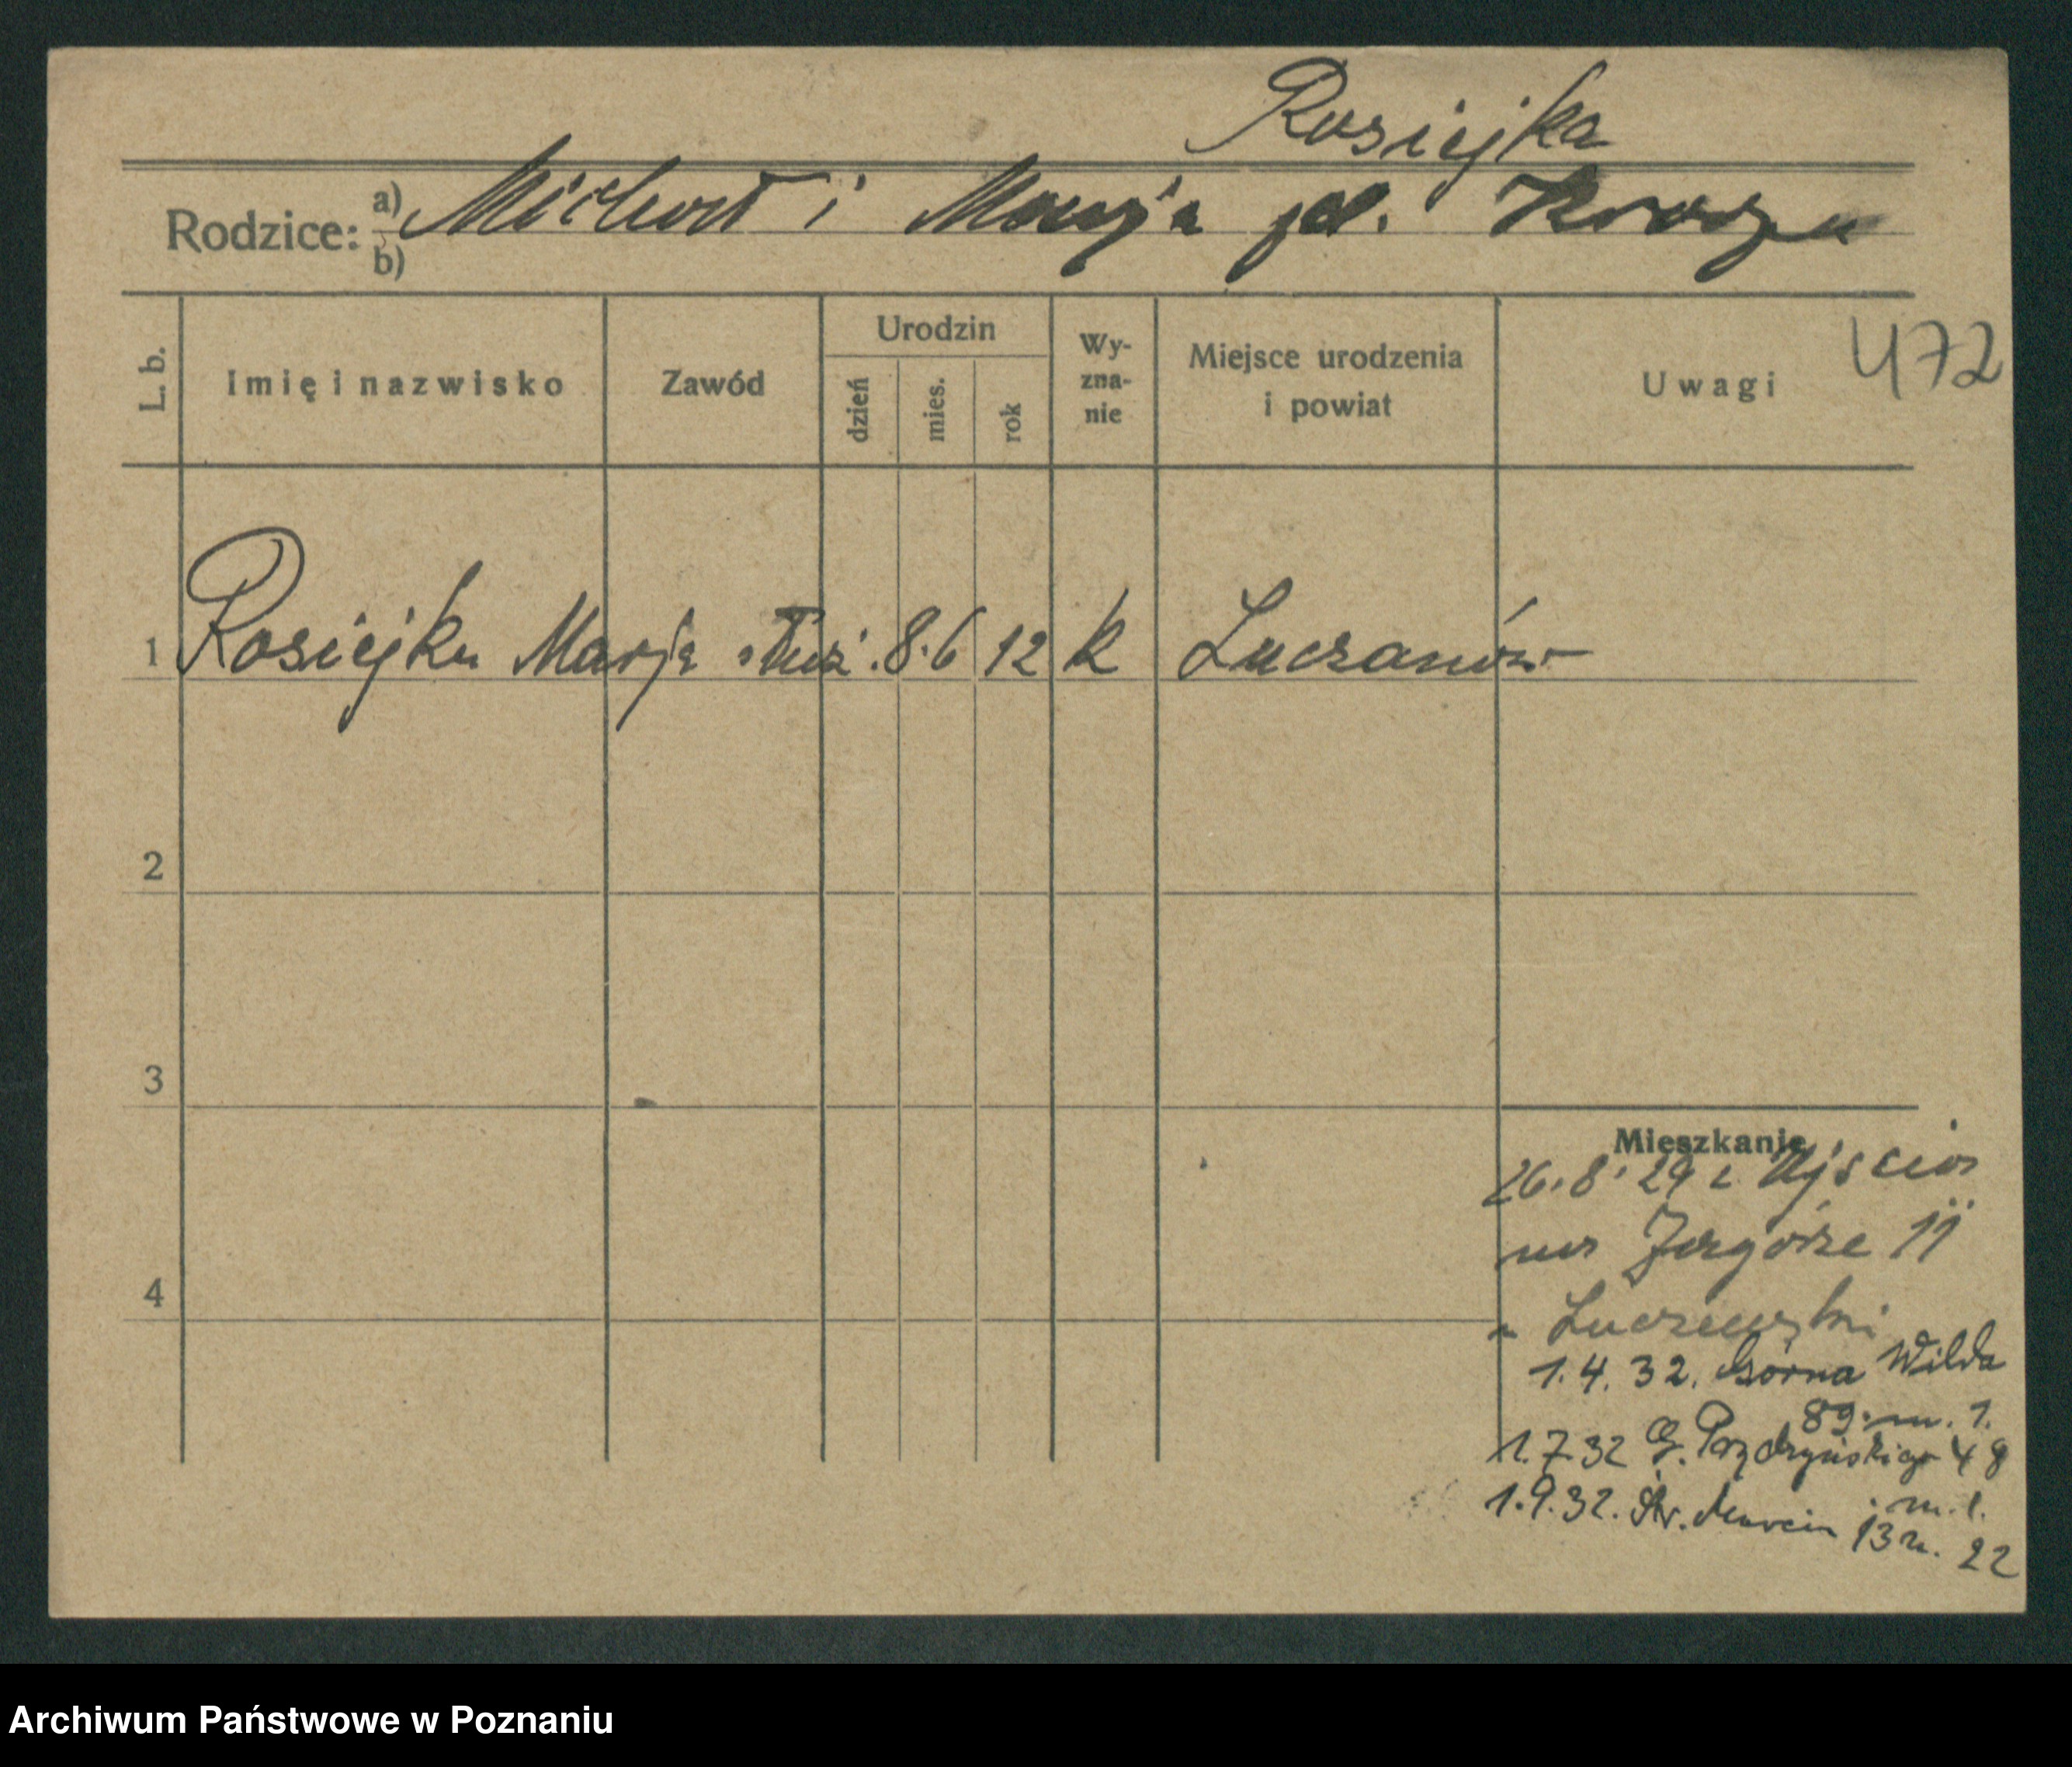 Rosiejka
Rodzice: a) Michał i Marja
b)
472
L. b. Imię i nazwisko Zawód Urodzin dzień mies. rok Wy-zna-nie Miejsce urodzenia i powiat Uwagi
1 Rosiejka Marja służ. 8. 6 12 k Luczanów
2
3
4
Mieszkanie
26.8.29 z Ujścia
na Zagórze 11
1.4.32. Górna Wilda
89. m. 1.
1.7.32 G. Prądzyńskiego 48
m. 1.
1.9.32. Św. Marcin 13 m. 22
Archiwum Państwowe w Poznaniu